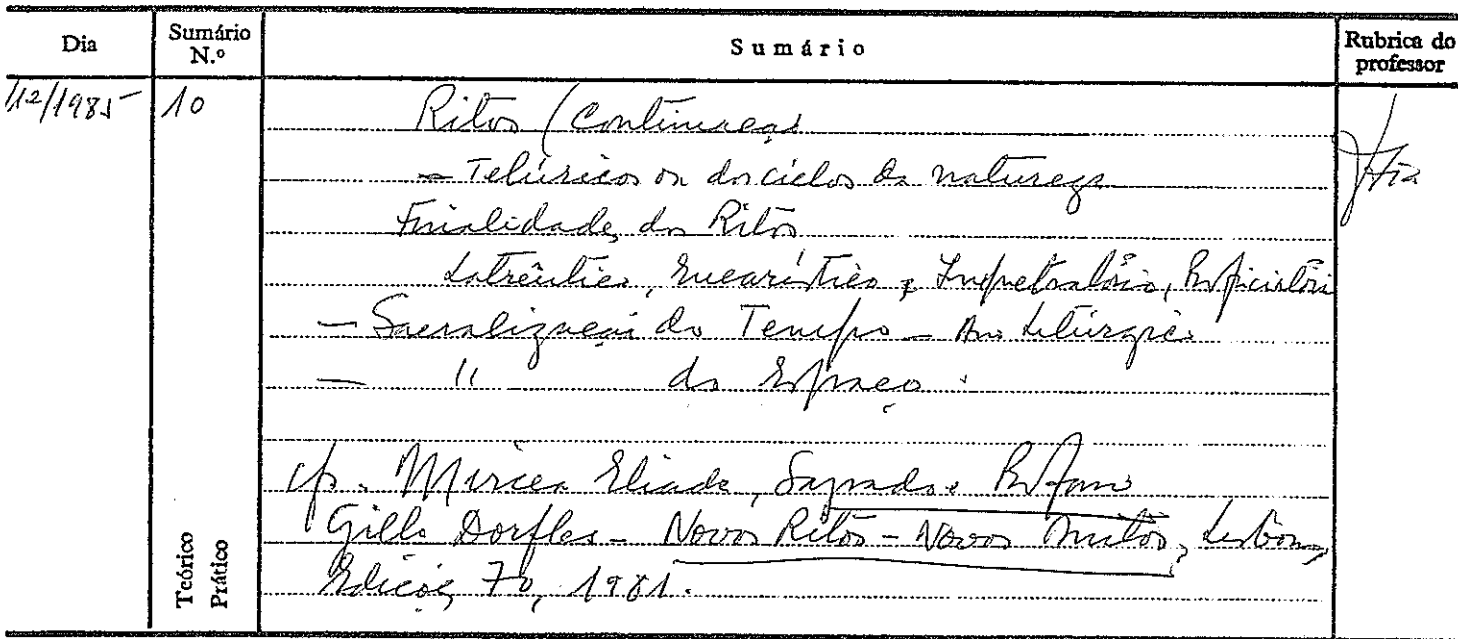 Dia Sumário N.º Sumário Rubrica do professor
/12/1985 10 Ritos (Continuação
- Telúricos ou dos ciclos da natureza
Finalidade dos Ritos
Latrêutica, Eucarística, Impetratória, Propiciatória
- Sacralização do Tempo - Ano Litúrgico
- " do Espaço.
cf. Mircea Eliade, Sagrado e Profano
Gillo Dorfles - Novos Ritos - Novos Mitos, Lisboa,
Edições 70, 1981.
Teórico
Prático